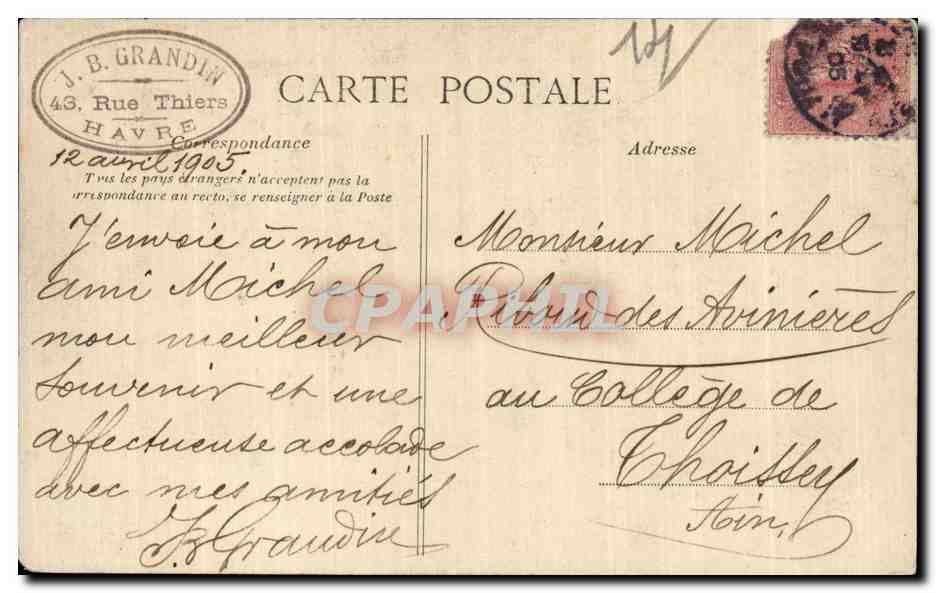 J. B. GRANDIN
43, Rue Thiers
HAVRE
CARTE POSTALE
Correspondance
12 avril 1905.
Tous les pays étrangers n'acceptent pas la
correspondance au recto, se renseigner à la Poste
J'envoie à mon
ami Michel
mon meilleur
souvenir et une
affectueuse accolade
avec mes amitiés
JBGrandin
Adresse
Monsieur Michel
des Avinières
au Collège de
Thoissey
Ain
CPAPHIL